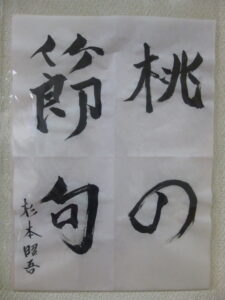 桃の
節句
杉本昭吾